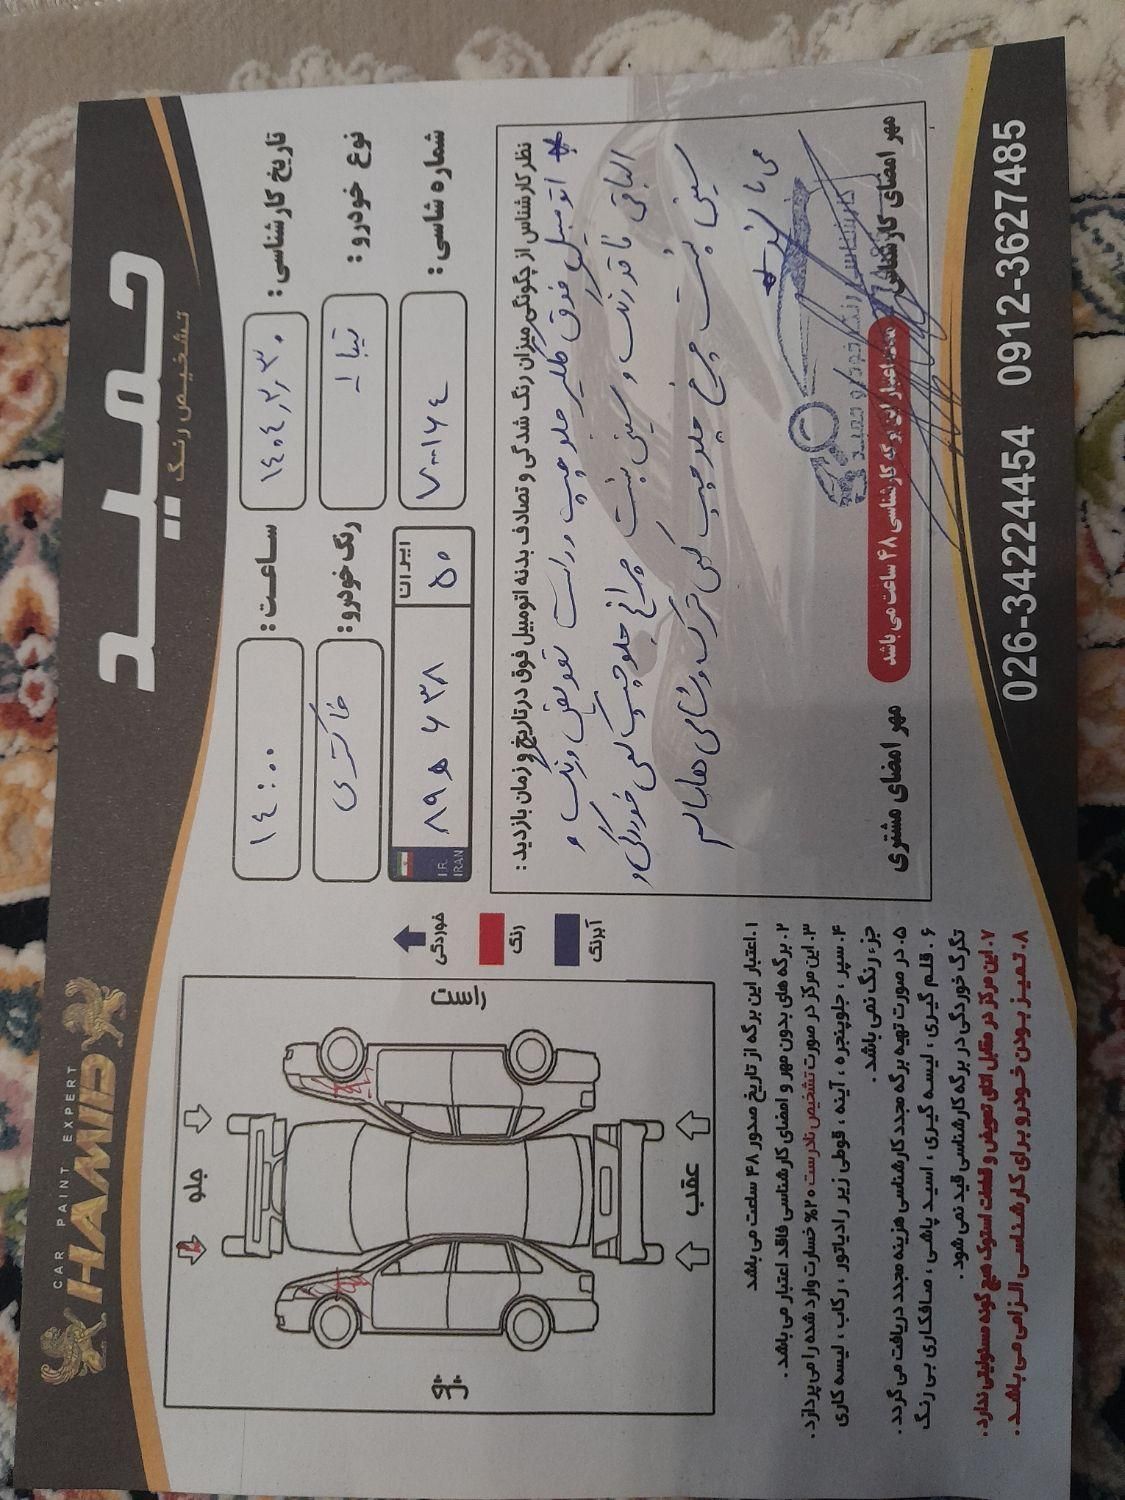 CAR PAINT EXPERT
HAMID
حمید
تشخیص رنگ
تاریخ کارشناسی : ۱۴۰۴٫۲٫۳۰
ساعت : ۱۴:۰۰
نوع خودرو : تیبا
رنگ خودرو : خاکستری
شماره شاسی :
ایران
۵۰
I.R.
IRAN
نظر کارشناس از چگونگی میزان رنگ شدگی و تصادف بدنه اتومبیل فوق در تاریخ و زمان بازدید :
* اتومبیل فوق گلگیر جلو چپ و راست تعویض و رنگ و
الباقی فاقد رنگ و سینی پشت چراغ جلو چپ کمی خوردگی و
سینی پشت چرخ جلو چپ کمی ترک و شاسی ها سالم
می باشد *
مهر امضای کارشناس
مدت اعتبار این برگه کارشناسی ۴۸ ساعت می باشد
مهر امضای مشتری
خوردگی
رنگ
آبرنگ
راست
جلو
عقب
چپ
۱. اعتبار این برگه از تاریخ صدور ۴۸ ساعت می باشد
۲. برگه های بدون مهر و امضای کارشناسی فاقد اعتبار می باشد .
۳. این مرکز در صورت تشخیص نادرست ۲۰% خسارت وارد شده را می پردازد .
۴. سپر ، جلوپنجره ، آینه ، قوطی زیر رادیاتور ، رکاب ، لیسه کاری
جزء رنگ نمی باشد .
۵. در صورت تهیه برگه مجدد کارشناسی هزینه مجدد دریافت می گردد .
۶. قلم گیری ، لیسه گیری ، اسید پاشی ، صافکاری بی رنگ
تگرگ خوردگی در برگه کارشناسی قید نمی شود .
۷. این مرکز در مقابل اتاق تعویض و قطعات استوک هیچ گونه مسئولیتی ندارد .
۸. تمیز بودن خودرو برای کارشناسی الزامی می باشد .
026-34224454 0912-3627485